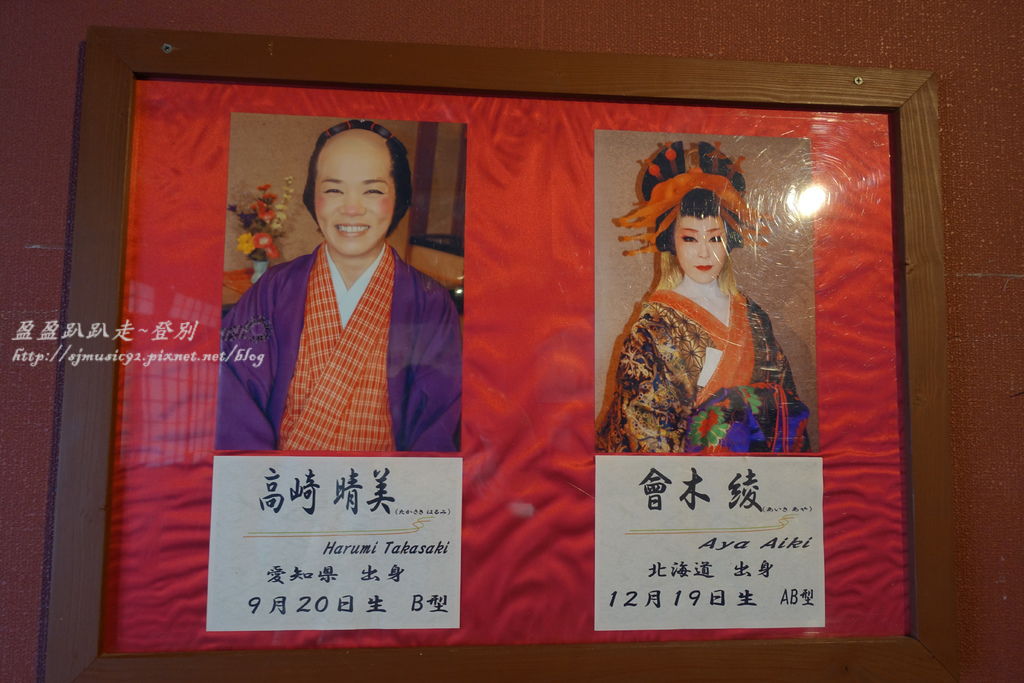 盈盈趴趴走~登別
http://sjmusic92.pixnet.net/blog
高崎 晴美
(たかさき はるみ)
Harumi Takasaki
愛知県 出身
9月20日生 B型
會木 綾
(あいき あや)
Aya Aiki
北海道 出身
12月19日生 AB型